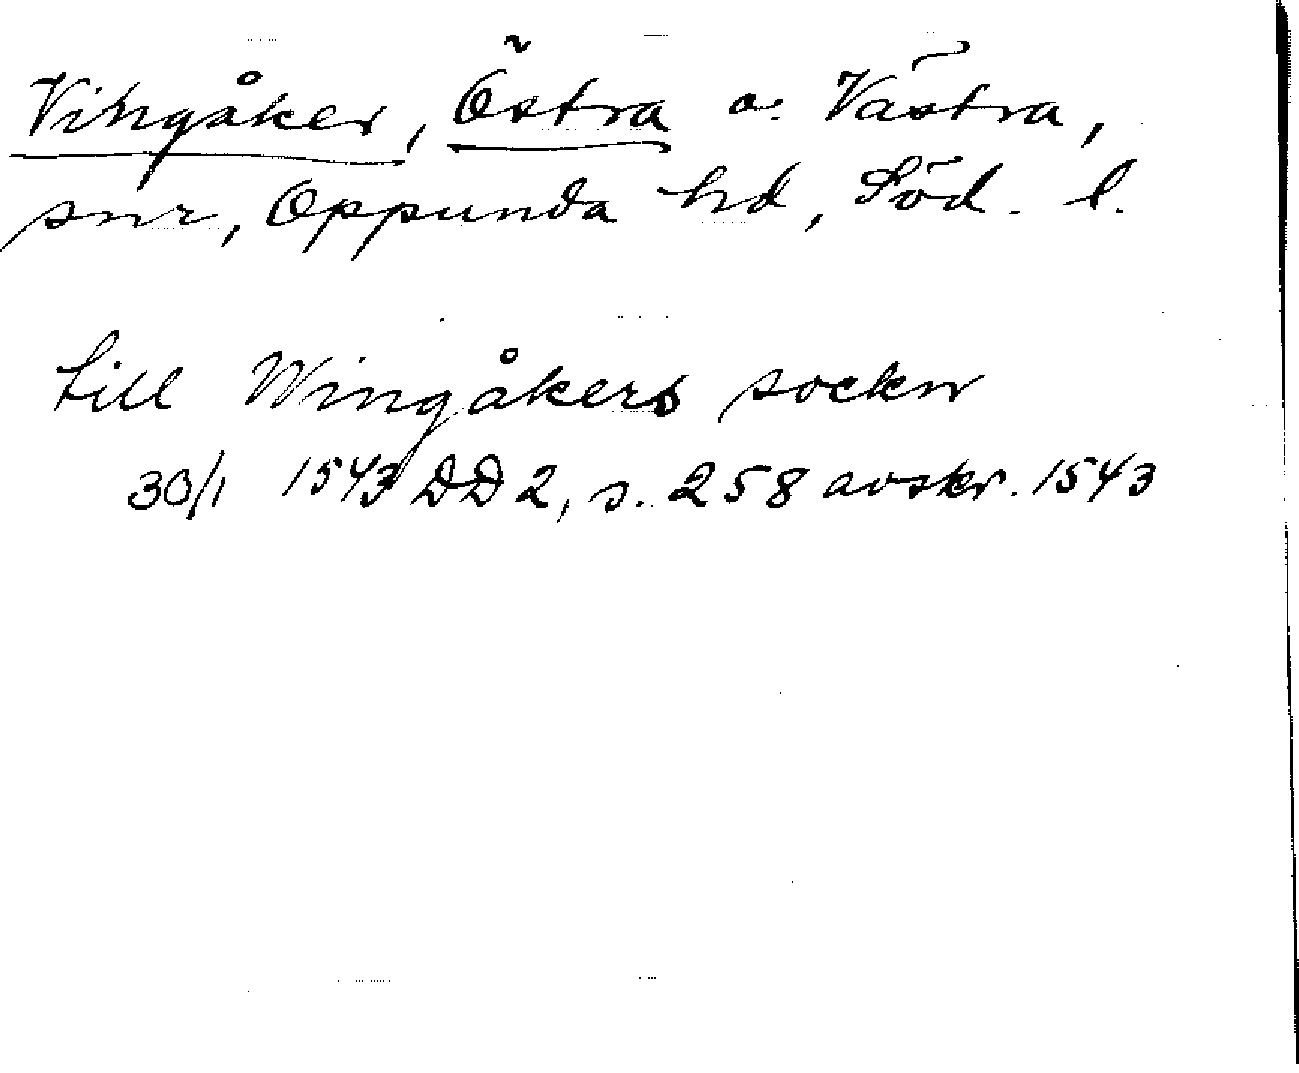 Vingåker, Östra o. Västra,
snr, Oppunda hd, Söd. l.
till Wingåkers sockn
30/1 1543 DD 2, s. 258 avskr. 1543